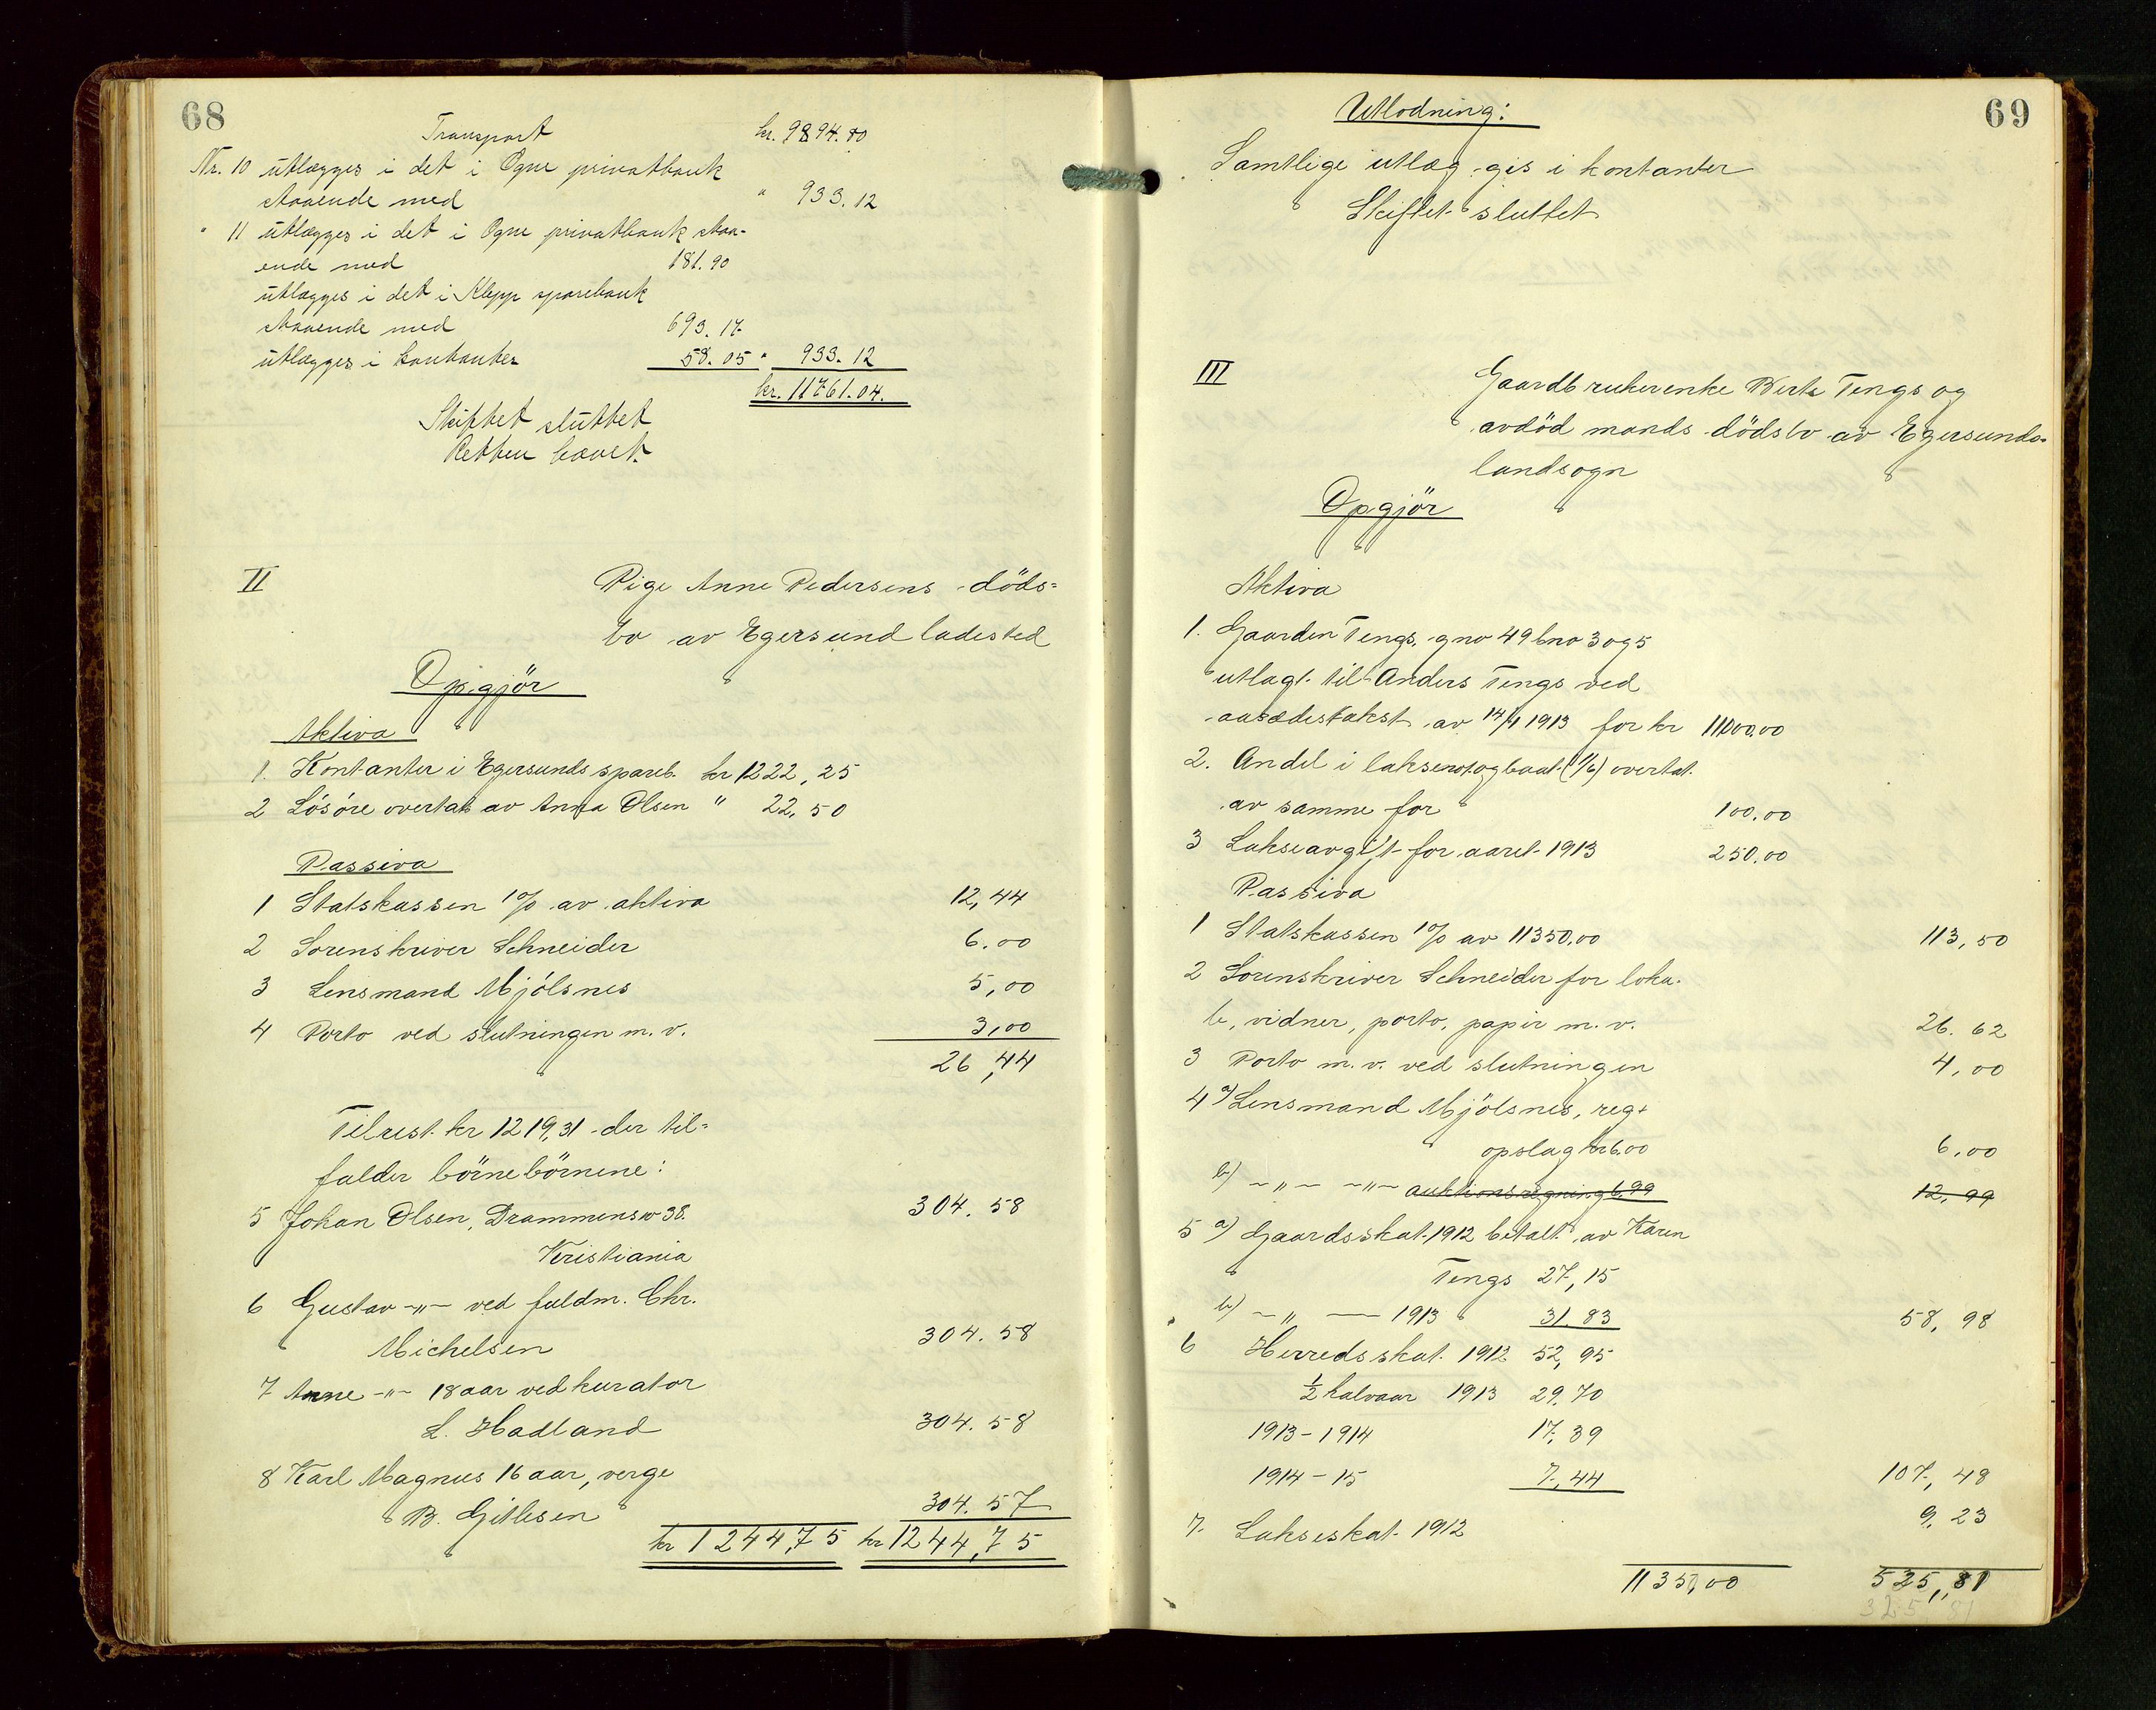 68
Transport kr. 9894.80
Nr. 10 utlægges i det i Ogne privatbank
staaende med " 933.12
" 11 utlægges i det i Ogne privatbank staa-
ende med 181.90
utlægges i det i Klepp sparebank
staaende med 693.17
utlægges i kontanter 58.05 " 933.12
kr. 11761.04.
Skiftet sluttet
Retten hævet.
II Pige Anne Pedersens döds=
bo av Egersund ladested
Opgjör
Aktiva
1. Kontanter i Egersunds spareb. kr 1222,25
2 Lösöre overtat av Anna Olsen " 22,50
Passiva
1 Statskassen 1% av aktiva 12,44
2 Sorenskriver Schneider 6.00
3 Lensmand Mjölsnes 5,00
4 Porto ved slutningen m. v. 3,00
26,44
Tilrest kr 1219,31 der til=
falder börnebörnene:
5 Johan Olsen, Drammensv 38. 304.58
Kristiania
6 Gustav -"- ved fuldm. Chr.
Michelsen 304.58
7 Anne -"- 18 aar ved kurator
L. Hadland 304.58
8 Karl Magnus 16 aar, verge
B. Gitlesen 304.57
kr 1244,75 kr 1244,75
69
Utlodning:
Samtlige utlæg gis i kontanter
Skiftet sluttet
III Gaardbrukerenke Berte Tengs og
avdöd mands dödsbo av Egersunds-
landsogn
Opgjör
Aktiva
1. Gaarden Tengs, gno 49 bno 3 og 5
utlagt til Anders Tengs ved
aasædestakst av 14/4 1913 for kr 11000.00
2. Andel i laksenot og baat (1/6) overtat
av samme for 100.00
3 Lakseavgift for aaret 1913 250.00
Passiva
1 Statskassen 1% av 11350.00 113,50
2 Sorenskriver Schneider for loka-
le, vidner, porto, papir m. v. 26.62
3 Porto m. v. ved slutningen 4,00
4 a) Lensmand Mjölsnes, reg+
opslag kr 6.00 6,00
b) -"- -"- auktionsregning 6,99 12,99
5 a) Gaardsskat 1912 betalt av Karen
Tengs 27,15
b) -"- — 1913 31.83 58,98
6 Herredsskat 1912 52,95
1/2 halvaar 1913 29.70
1913-1914 17,39
1914-15 7,44 107,48
7. Lakseskat 1912 9.23
11350,00 525,81
325 81